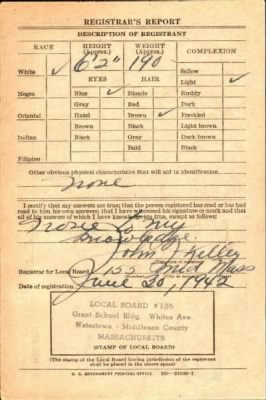 REGISTRAR'S REPORT
DESCRIPTION OF REGISTRANT
RACE HEIGHT (Approx.) WEIGHT (Approx.) COMPLEXION
6'2" 190
White ✓ Sallow
EYES HAIR Light ✓
Negro Blue ✓ Blonde Ruddy
Gray Red Dark
Oriental Hazel Brown ✓ Freckled
Brown Black Light brown
Indian Black Gray Dark brown
Bald Black
Filipino
Other obvious physical characteristics that will aid in identification
None
I certify that my answers are true; that the person registered has read or has had
read to him his own answers; that I have witnessed his signature or mark and that
all of his answers of which I have knowledge are true, except as follows:
None to my
knowledge
John Kelley
Registrar for Local Board 155 Mass
Date of registration June 20, 1942
LOCAL BOARD #155
Grant School Bldg. White's Ave.
Watertown - Middlesex County
MASSACHUSETTS
(STAMP OF LOCAL BOARD)
(The stamp of the Local Board having jurisdiction of the registrant
shall be placed in the above space)
U. S. GOVERNMENT PRINTING OFFICE